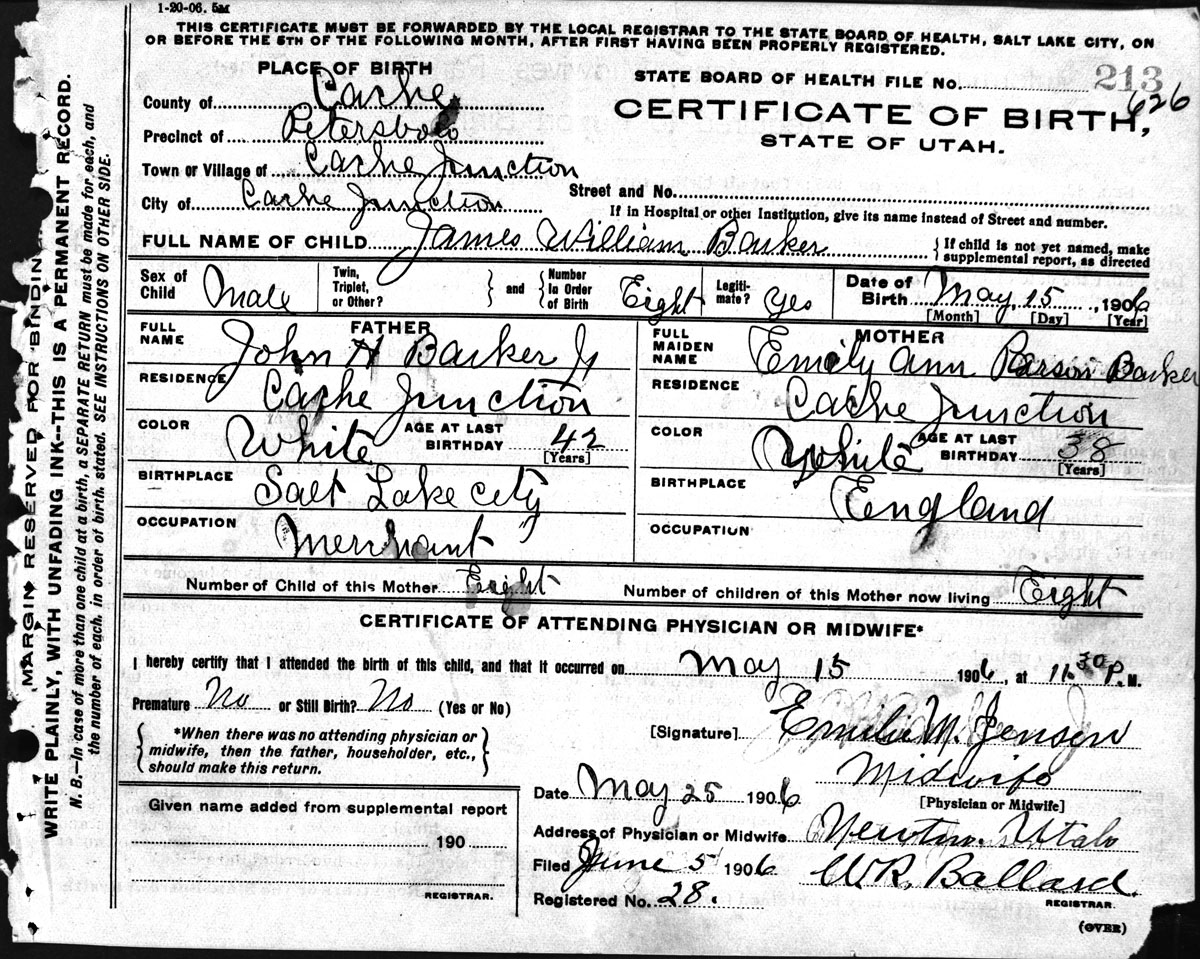 1-20-06. 5M
THIS CERTIFICATE MUST BE FORWARDED BY THE LOCAL REGISTRAR TO THE STATE BOARD OF HEALTH, SALT LAKE CITY, ON
OR BEFORE THE 5TH OF THE FOLLOWING MONTH, AFTER FIRST HAVING BEEN PROPERLY REGISTERED.
PLACE OF BIRTH
STATE BOARD OF HEALTH FILE No. 213
626
County of Cache
CERTIFICATE OF BIRTH,
Precinct of Petersboro
STATE OF UTAH.
Town or Village of Cache Junction
Street and No.
City of Cache Junction
If in Hospital or other Institution, give its name instead of Street and number.
FULL NAME OF CHILD James William Barker
{ If child is not yet named, make
supplemental report, as directed
Sex of Child Male
Twin, Triplet, or Other? } and { Number In Order of Birth Eight
Legitimate? Yes
Date of Birth May 15, 1906
[Month] [Day] [Year]
FATHER
FULL NAME John H Barker Jr
RESIDENCE Cache Junction
COLOR White AGE AT LAST BIRTHDAY 42
[Years]
BIRTHPLACE Salt Lake City
OCCUPATION Merchant
MOTHER
FULL MAIDEN NAME Emily Ann Parson Barker
RESIDENCE Cache Junction
COLOR White AGE AT LAST BIRTHDAY 38
[Years]
BIRTHPLACE England
OCCUPATION
Number of Child of this Mother Eight
Number of children of this Mother now living Eight
CERTIFICATE OF ATTENDING PHYSICIAN OR MIDWIFE*
I hereby certify that I attended the birth of this child, and that it occurred on May 15 1906, at 11.30 P. M.
Premature No or Still Birth? No (Yes or No)
[Signature] Emilie M. Jensen
{ *When there was no attending physician or
midwife, then the father, householder, etc.,
should make this return. }
Midwife
[Physician or Midwife]
Date May 25 1906
Address of Physician or Midwife Newton. Utah
Filed June 5 1906 W.R. Ballard
REGISTRAR.
Registered No. 28.
Given name added from supplemental report
190
REGISTRAR.
(OVER)
MARGIN RESERVED FOR BINDING
WRITE PLAINLY, WITH UNFADING INK--THIS IS A PERMANENT RECORD.
N. B.—In case of more than one child at a birth, a SEPARATE RETURN must be made for each, and
the number of each, in order of birth, stated. SEE INSTRUCTIONS ON OTHER SIDE.